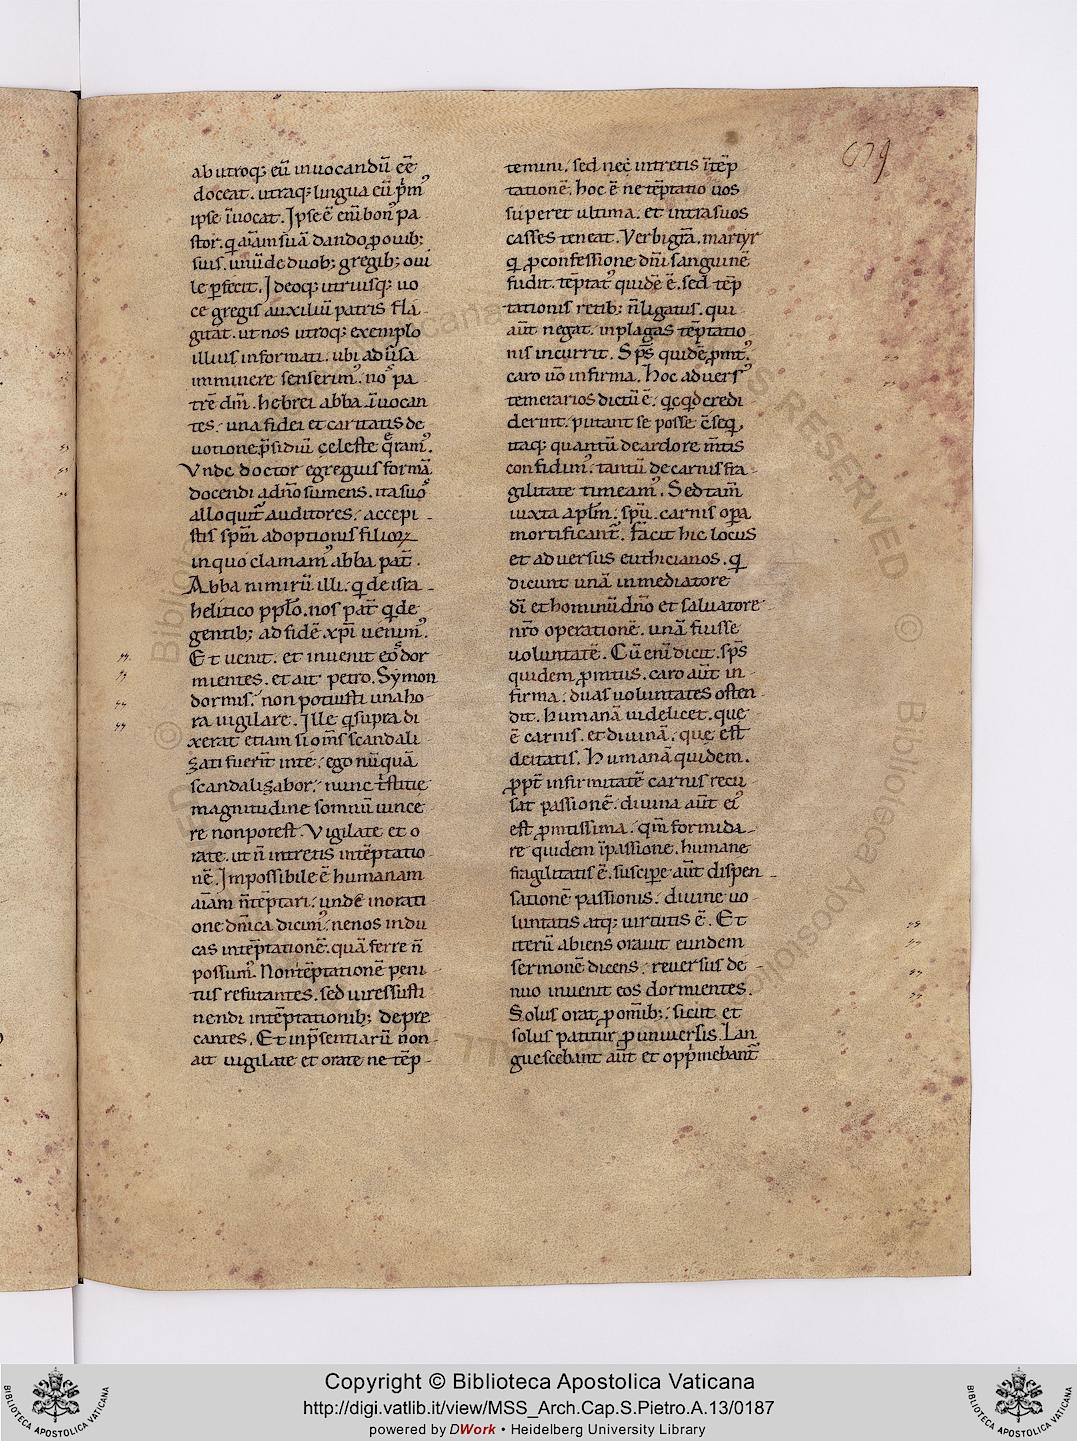 679
ab utroq; eū inuocandū eē
doceat. utraq; lingua eū p̄mꝰ
ipse īuocat. Ipse ē eni bonꝰ pa
stor. q̄ aīam suā dando ꝓ ouib;
suis. unū de duob; gregib; oui
le ꝑfecit. Ideoq; utriusq; uo
ce gregis auxiliū patris fla
gitat. ut nos utroq; exemplo
illius informati. ubi aduersa
imminere senserimꝰ. nos pa
trē dm̄. hebrei abba īuocan
tes. una fidei et caritatis de
uotione p̄sidiū celeste q̄ramꝰ.
Vnde doctor egregius formā
docendi a dn̄o sumens. ita suos
alloquit̄ auditores. accepi
stis spm̄ adoptionis filioꝝ
in quo clamamꝰ abba pat̄.
Abba nimirū illi. q̄ de isra
helitico pplo. nos pat̄ q̄ de
gentib; ad fidē xp̄i uenimꝰ.
Et uenit. et inuenit eos dor
mientes. et ait petro. Symon
dormis. non potuisti una ho
ra uigilare. Ille q̄ supra di
xerat etiam si om̄s scandali
zati fuerint in te. ego nūquā
scandalizabor. nunc tristitie
magnitudine somnū uince
re non potest. Vigilate et o
rate. ut n̄ intretis in tēptatio
nē. Impossibile ē humanam
aīam n̄ tēptari. unde in orati
one dn̄ica dicimꝰ. ne nos indu
cas in tēptationē. quā ferre n̄
possumꝰ. Non tēptationē peni
tus refutantes. sed uires susti
nendi in tēptationib; depre
cantes. Et in p̄sentiarū non
ait uigilate et orate ne tēp
temini. sed nec intretis ī tēp
tationē. hoc ē ne tēptatio uos
superet ultima. et intra suos
casses teneat. Verbi grā. martyr
q̄ ꝓ confessione dn̄i sanguinē
fudit. tēptatꝰ quidē ē. sed tēp
tationis retib; n̄ ligatus. qui
aūt negat. in plagas tēptatio
nis incurrit. Sp̄s quidē ꝓmtꝰ.
caro uō infirma. Hoc aduersꝰ
temerarios dictū ē. q̄cq̄d credi
derint. putant se posse ēseq̄.
itaq; quantū de ardore m̄tis
confidimꝰ. tantū de carnis fra
gilitate timeamꝰ. Sed tam̄
iuxta aplm̄. spū. carnis oꝑa
mortificant̄. Facit hic locus
et aduersus euthicianos. q̄
dicunt unā in mediatore
dī et hominū dn̄o et saluatore
nr̄o operationē. unā fuisse
uoluntatē. Cū eni dicit. sp̄s
quidem ꝓmtus. caro aūt in
firma. duas uoluntates osten
dit. humanā uidelicet. que
ē carnis. et diuinā. que est
deitatis. Humanā quidem.
ꝓpt̄ infirmitatē carnis recu
sat passionē. diuina aūt eiꝰ
est ꝓmtissima. qm̄ formida
re quidem ī passione. humane
fragilitatis ē. suscipe aūt dispen
sationē passionis. diuine uo
luntatis atq; uirtutis ē. Et
iterū abiens orauit eundem
sermonē dicens. reuersus de
nuo inuenit eos dormientes.
Solus orat ꝓ omib;. sicut et
solus patitur ꝓ uniuersis. Lan
guescebant aūt et opp̄mebant̄
Copyright © Biblioteca Apostolica Vaticana
http://digi.vatlib.it/view/MSS_Arch.Cap.S.Pietro.A.13/0187
powered by DWork • Heidelberg University Library